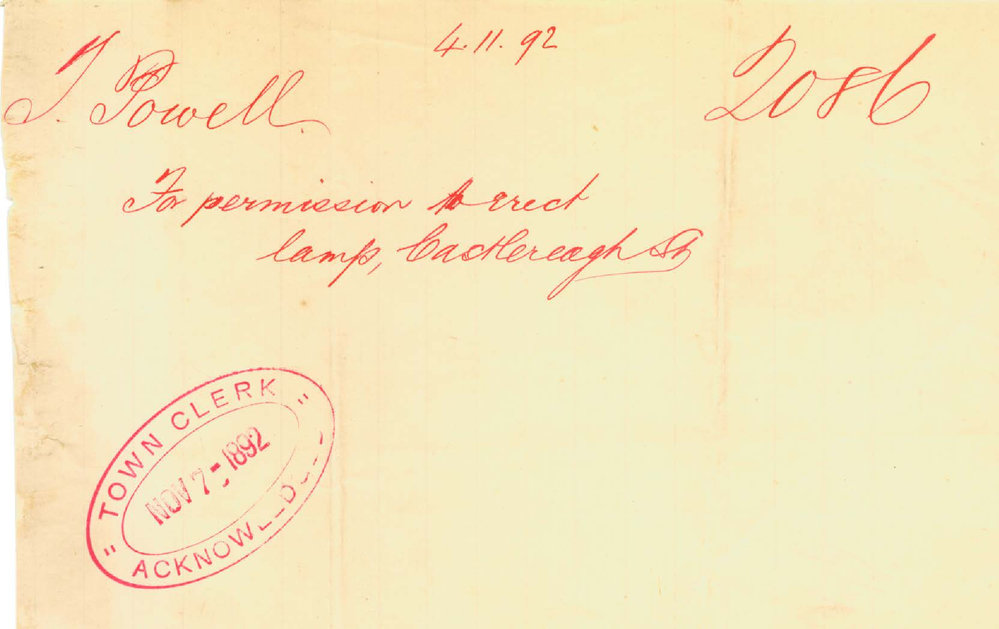 4.11.92
T. Powell. 2086
For permission to erect
lamp, Castlereagh St
TOWN CLERK
NOV 7 - 1892